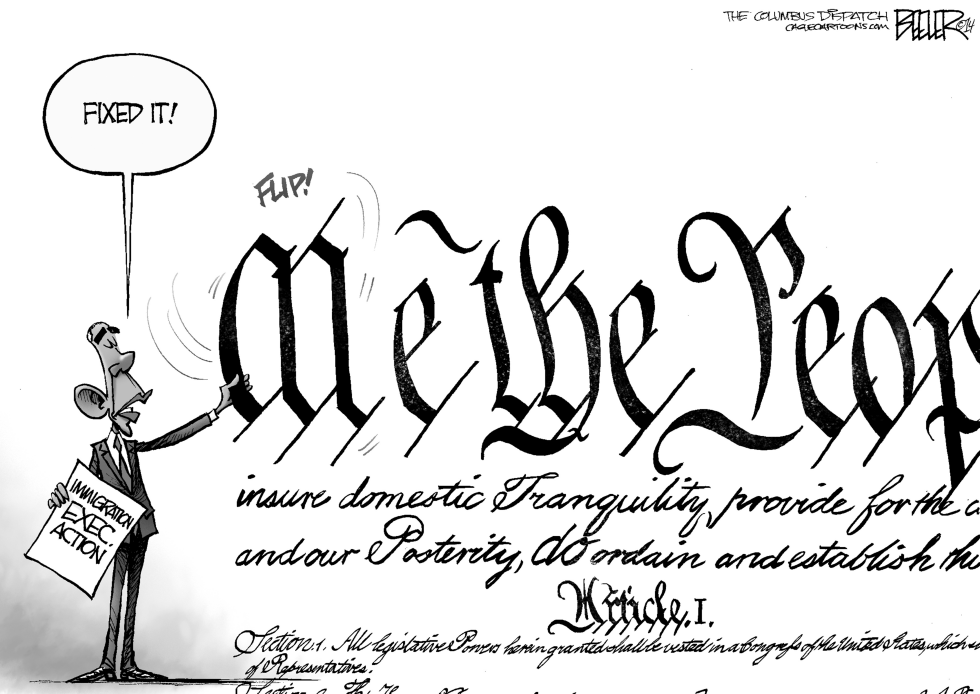 THE COLUMBUS DISPATCH
CAGLECARTOONS.COM
BEELER ©14
FIXED IT!
FLIP!
Me the Peop
IMMIGRATION
EXEC.
ACTION
insure domestic Tranquility, provide for the c
and our Posterity, do ordain and establish thi
Article. I.
Section. 1. All legislative Powers herein granted shall be vested in a Congress of the United States, which
of Representatives.
Section